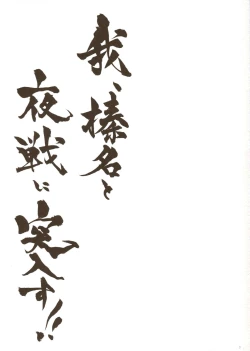 我、榛名と
夜戦に
突入す!!